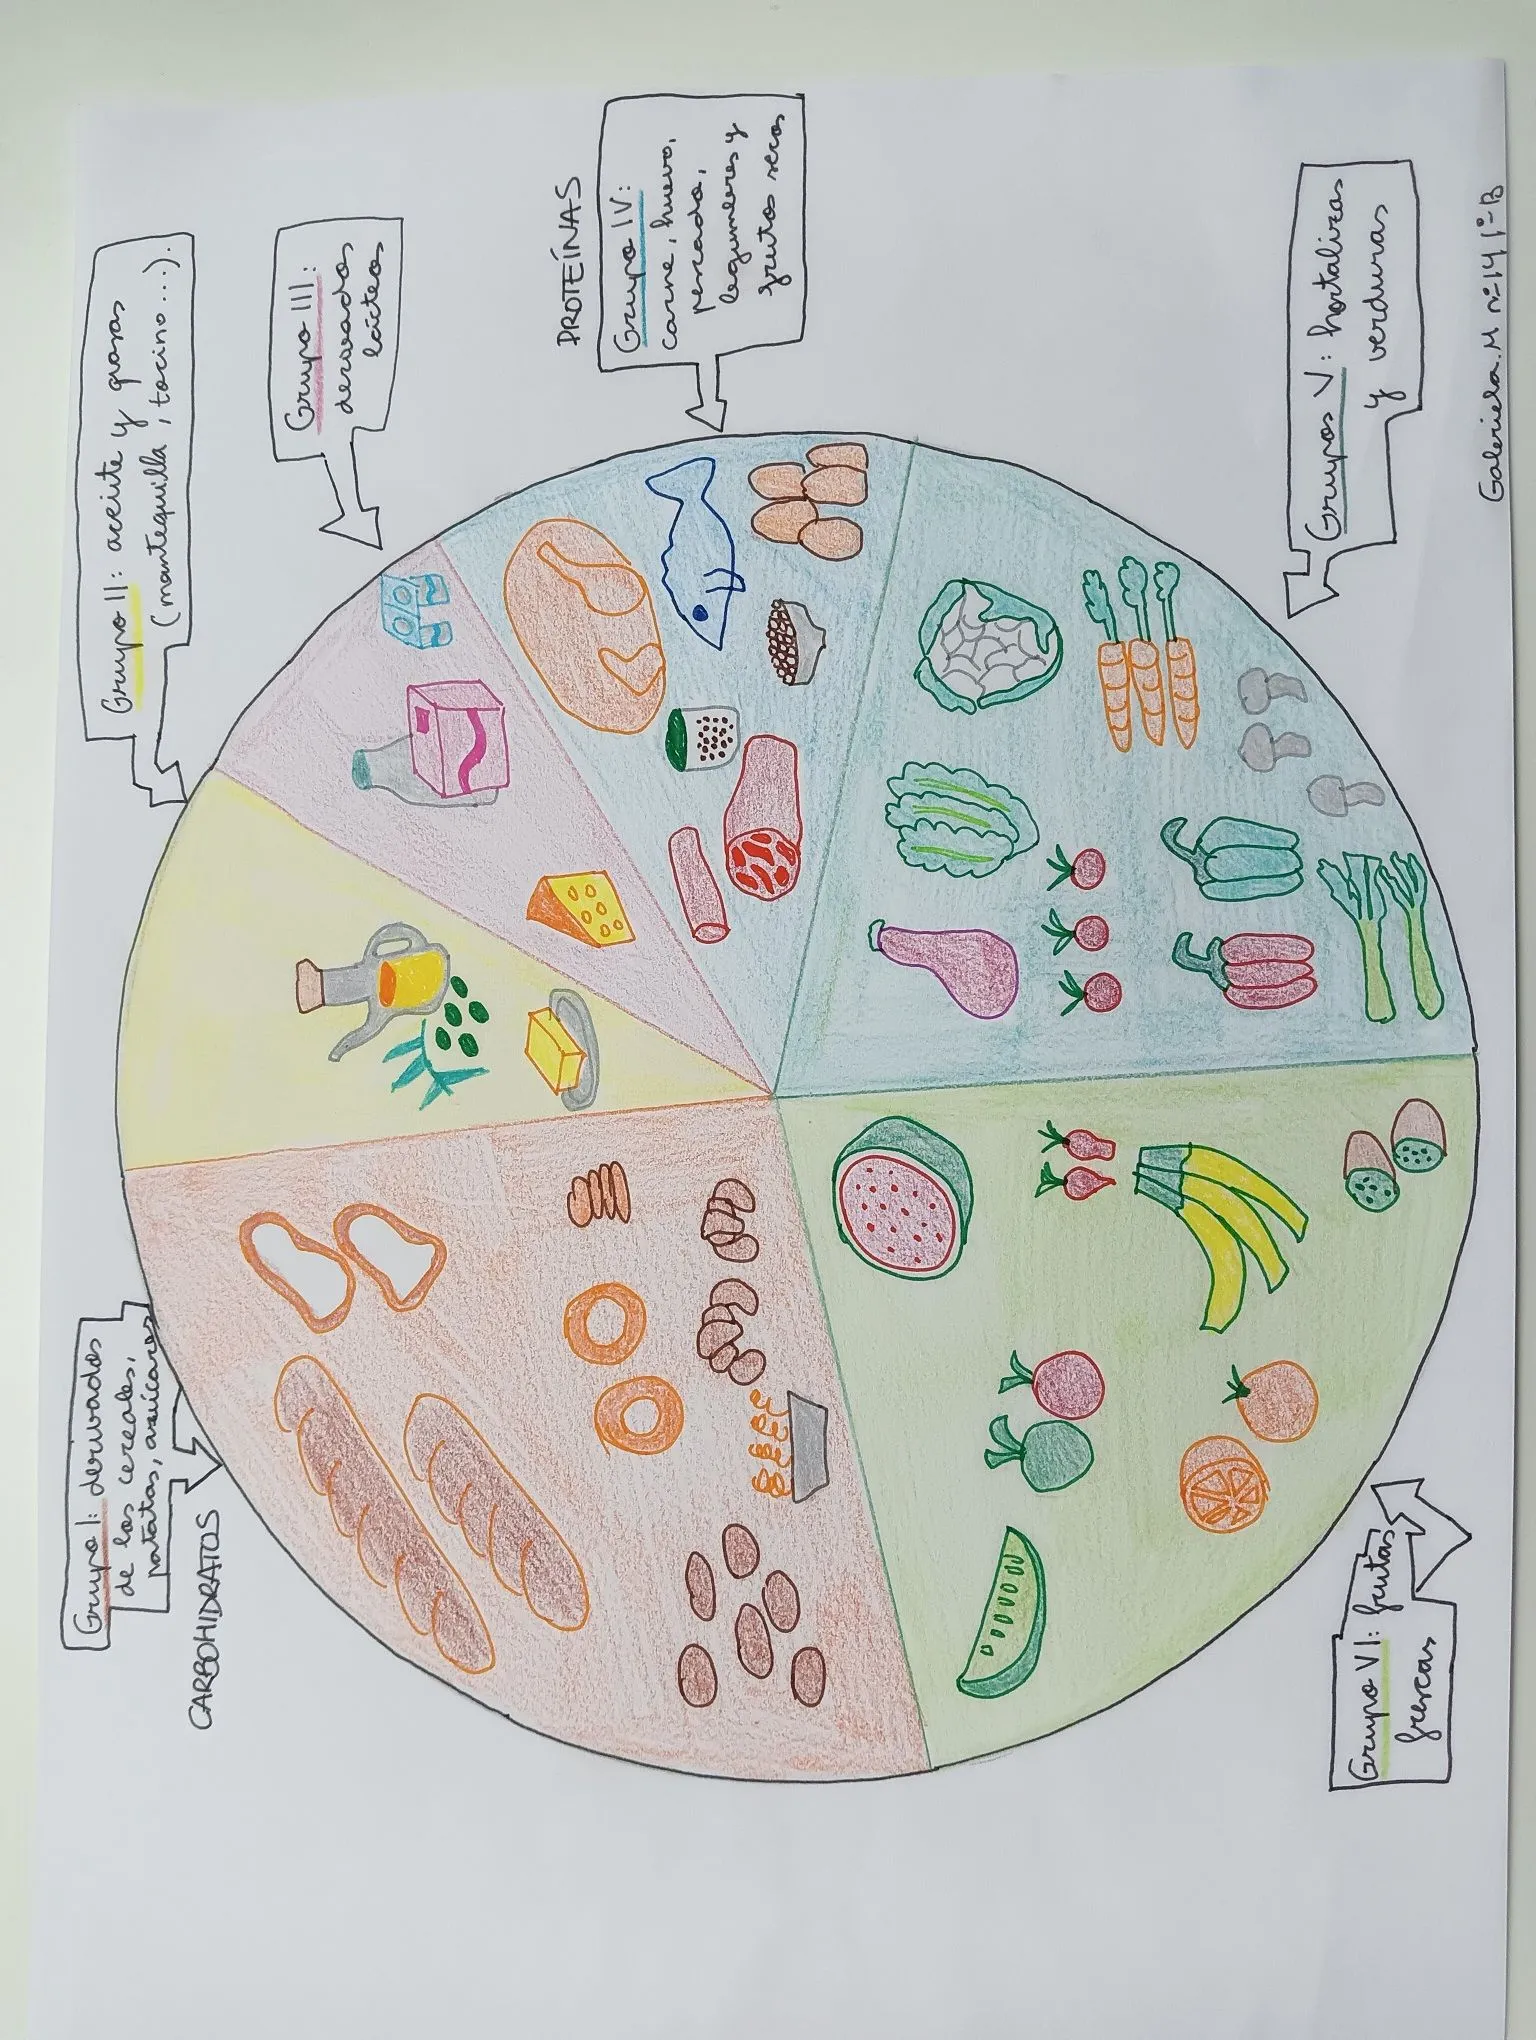 Grupo II: aceite y grasas
(mantequilla, tocino...).
Grupo III:
derivados
lácteos
PROTEÍNAS
Grupo IV:
carne, huevo,
pescado,
legumbres y
frutos secos
Grupos V: hortalizas
y verduras
Gabriela.M nº14 1º-B
Grupo I: derivados
de los cereales,
patatas, azúcares
CARBOHIDRATOS
Grupo VI: frutas
frescas